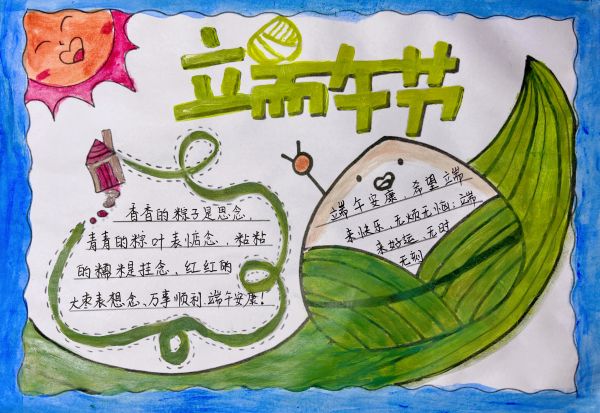 端午节
香香的粽子是思念、
青青的粽叶表惦念、粘粘
的糯米是挂念、红红的
大枣表想念、万事顺利.端午安康!
端午安康,希望端
来快乐,无烦无恼;端
来好运,无时
无刻